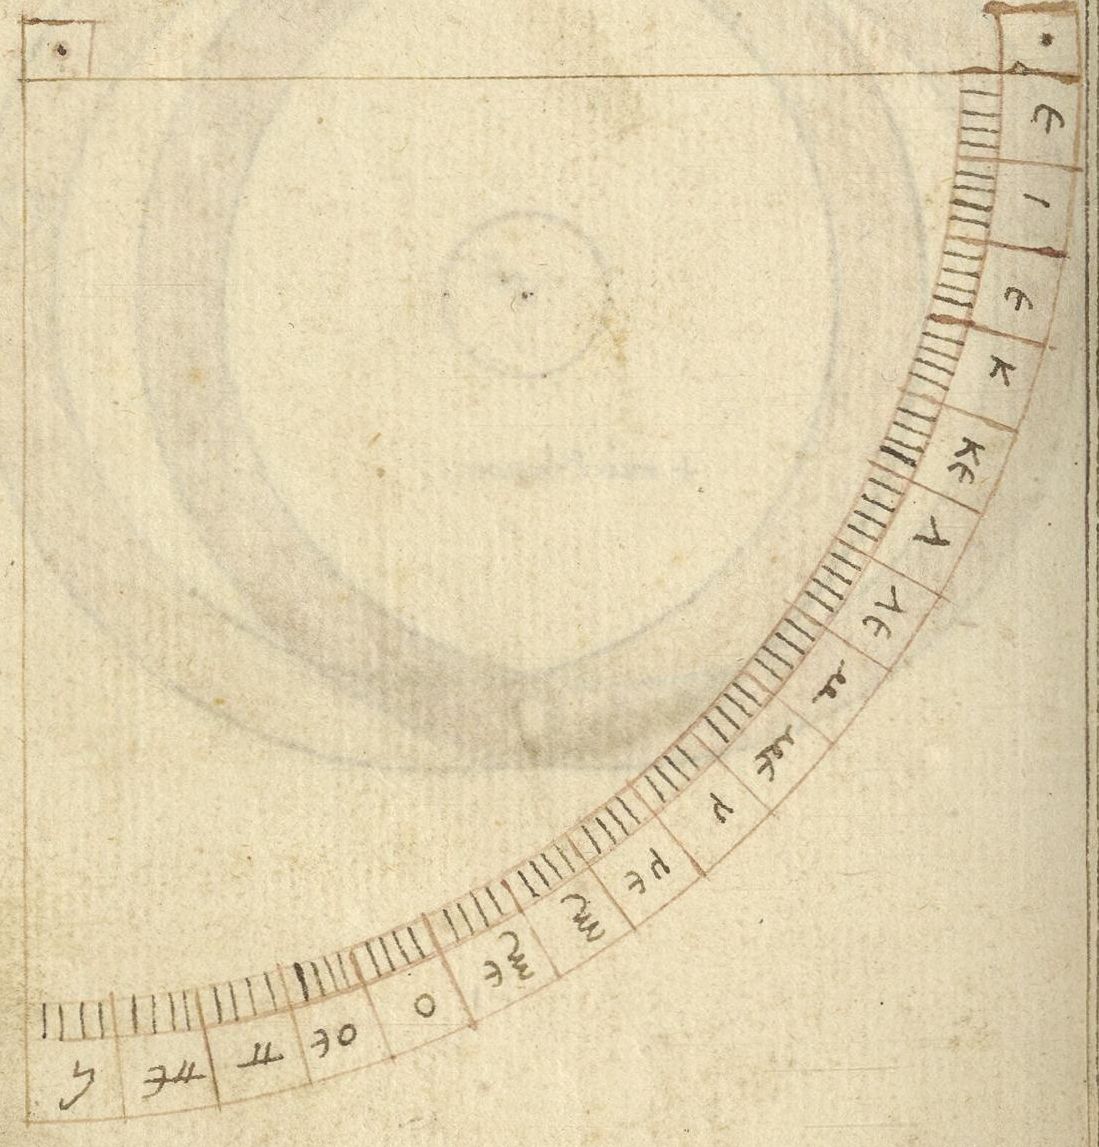 ε
ι
ιε
κ
κε
λ
λε
μ
με
ν
νε
ξ
ξε
ο
οε
π
πε
ϟ